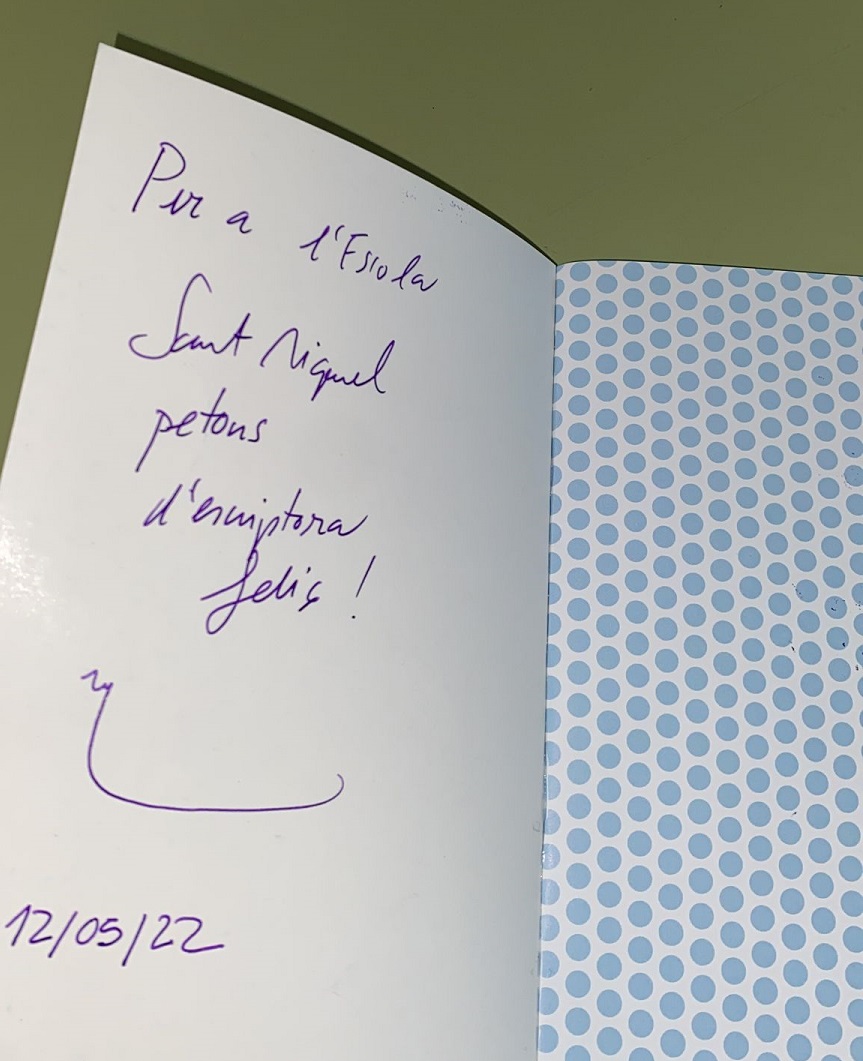 Per a l'Escola
Sant Miquel
petons
d'escriptora
feliç!
12/05/22